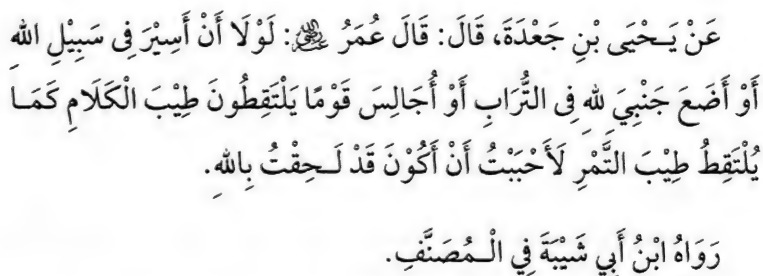 عَنْ يَـحْيَى بْنِ جَعْدَةَ، قَالَ: قَالَ عُمَرُ رضي الله عنه: لَوْلَا أَنْ أَسِيْرَ فِى سَبِيْلِ اللهِ
أَوْ أَضَعَ جَنْبِيَ لِلهِ فِى التُّرَابِ أَوْ أُجَالِسَ قَوْمًا يَلْتَقِطُونَ طِيْبَ الْكَلَامِ كَمَـا
يُلْتَقِطُ طِيْبَ التَّمْرِ لَأَحْبَبْتُ أَنْ أَكُوْنَ قَدْ لَـحِقْتُ بِاللهِ.
رَوَاهُ ابْنُ أَبِي شَيْبَةَ فِي الْـمُصَنَّفِ.